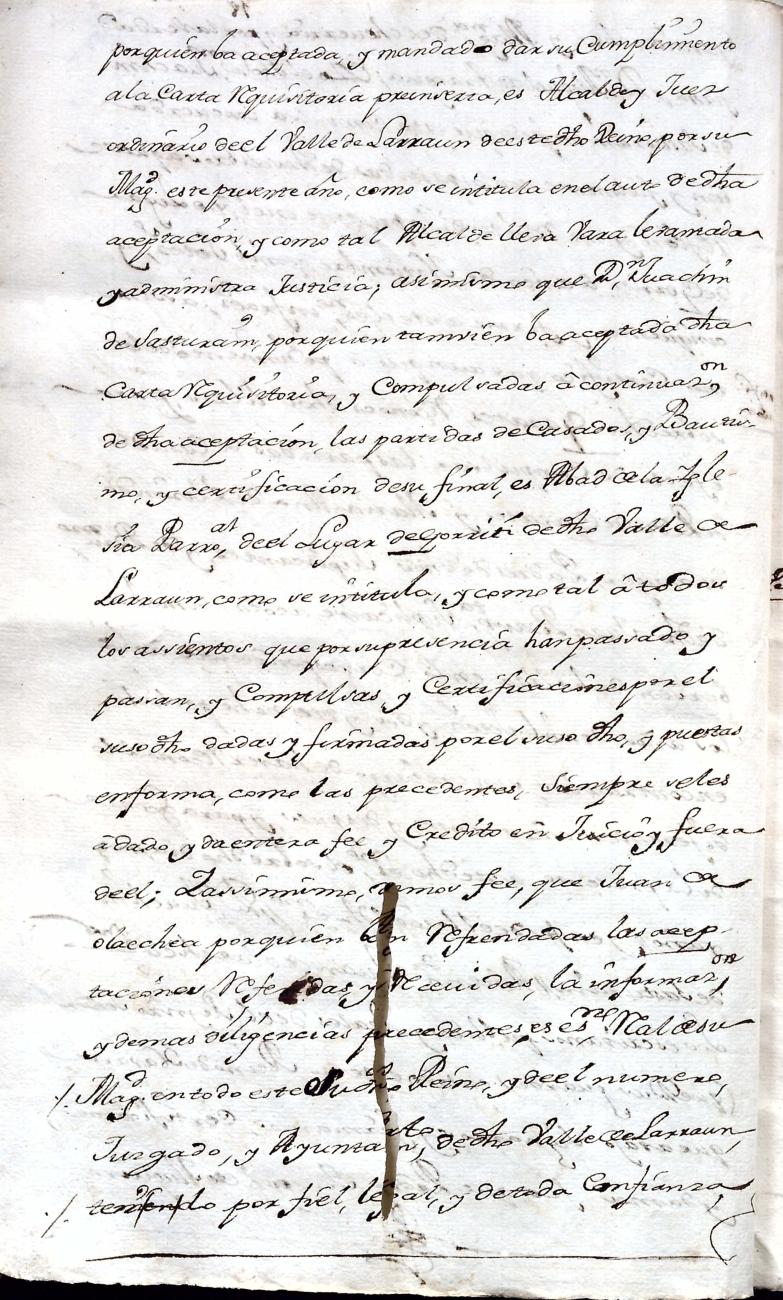 porquien ba aceptada, y mandado dar su Cumplimento
ala Carta Rquisitoria preinserta, es Alcalde y Juez
ordinario de el Valle de Larraun de este dho Reino, por su
Magd. este presente año, como se intitula en el auto de dha
aceptacion, y como tal Alcalde lleva Vara levamada
y administra Justicia; asimismo que Dn. Juachin
de Sasturain, porquien tamvien ba aceptada dha
Carta Rquisitoria, y Compulsadas â continuazon,
de dha aceptacion, las partidas de Casados, y Bautis-
mo, y certificacion de su final, es Abad de la Igle-
sia Parroal, de el Lugar de Gorriti de dho Valle de
Larraun, como se intitula, y como tal â todos
los assientos que por su presencia han passado y
passan, y Compulsas, y Certificaciones por el
suso dho dadas y firmadas por el suso dho, y puestas
en forma, como las precedentes, siempre se les
â dado y da entera fee y Credito en Juicio y fuera
de el; Y assimismo, damos fee, que Juan de
olaechea porquien ban Rfrendadas las acep-
taciones Rferidas, y Rcevidas, la informazon,
y demas diligencias precedentes, es esno. Rl de su
Magd. en todo este dho Reino, y de el numero,
Juzgado, y Ayuntamto, de dho Valle de Larraun,
tenido por fiel, legal, y de toda Confianza,